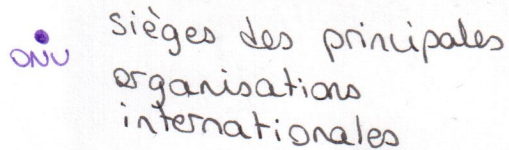 sièges des principales
ONU
organisations
internationales